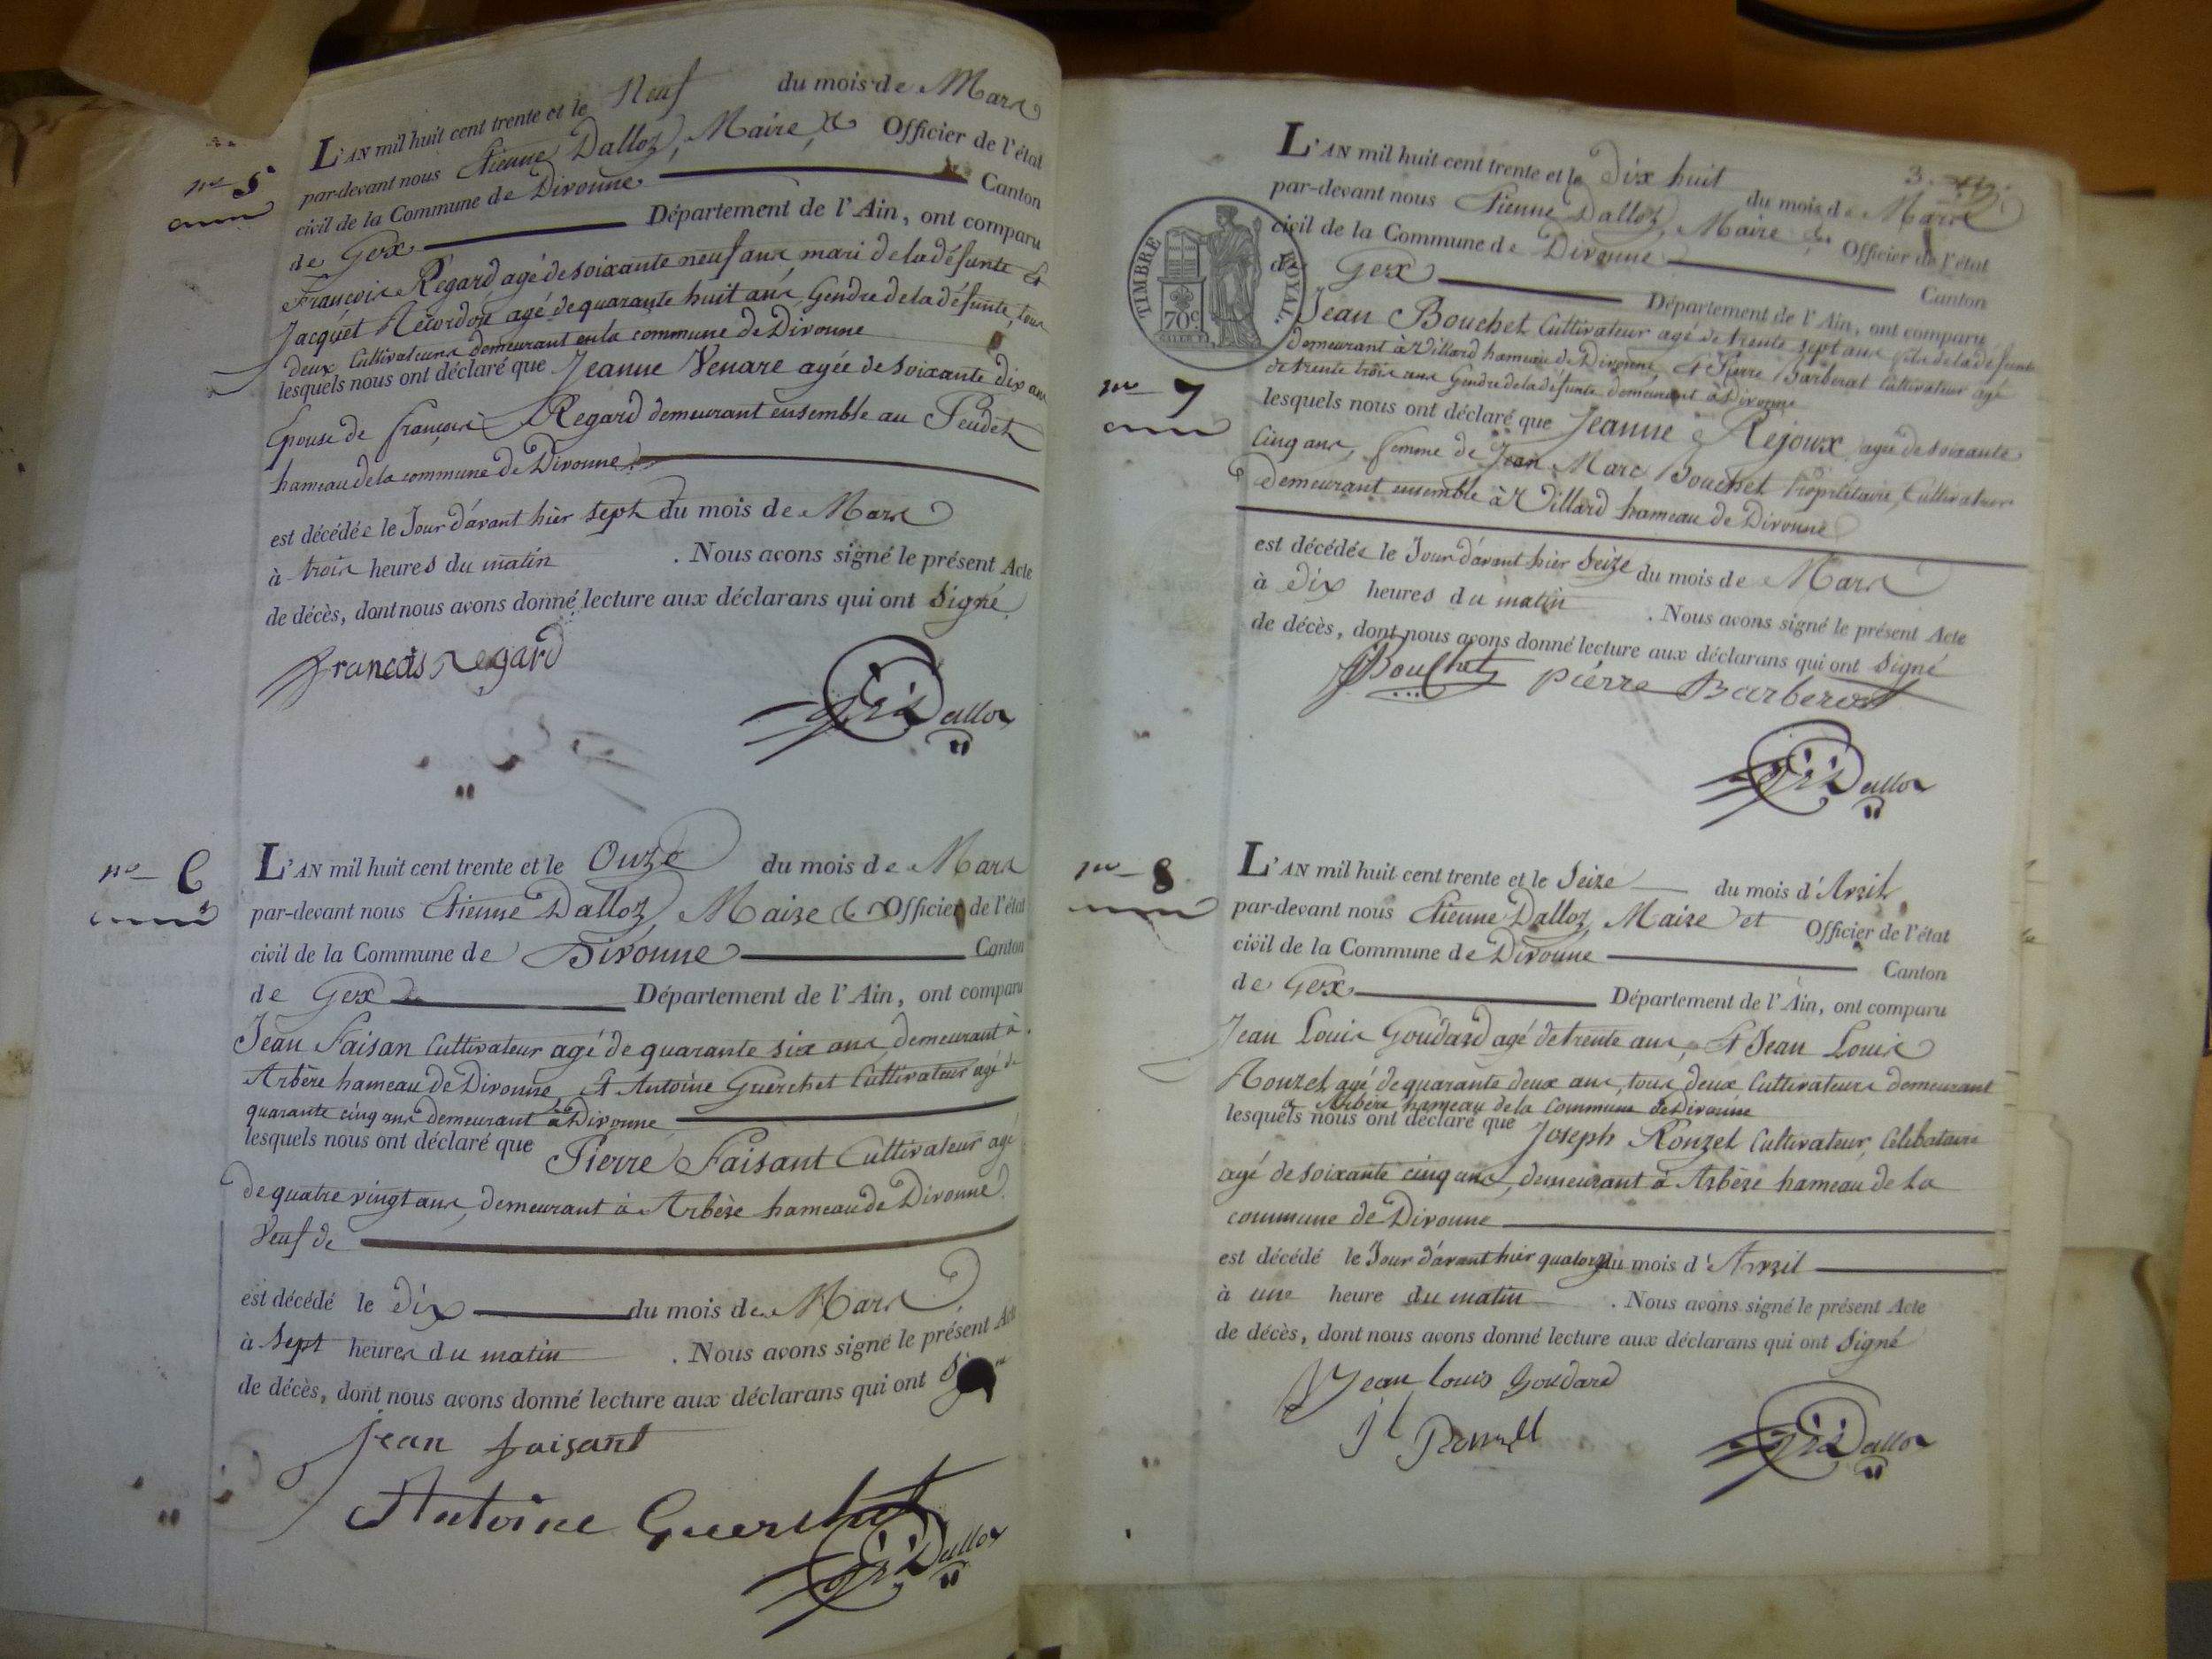 nº 5
L'AN mil huit cent trente et le Neuf du mois de Mars
par-devant nous Etienne Dalloz, Maire, & Officier de l'état
civil de la Commune de Divonne Canton
de Gex Département de l'Ain, ont comparu
François Regard agé de soixante neuf ans mari de la défunte Et
Jacquet Recordon agé de quarante huit ans, Gendre de la défunte, tous
deux Cultivateurs demeurant en la commune de Divonne
lesquels nous ont déclaré que Jeanne Venare agée de soixante dix ans
Epouse de françois Regard demeurant ensemble au
hameau de la commune de Divonne
est décédée le Jour d'avant hier sept du mois de Mars
à trois heures du matin . Nous avons signé le présent Acte
de décès, dont nous avons donné lecture aux déclarans qui ont Signé
françois Regard
Dalloz
nº 6
L'AN mil huit cent trente et le Onze du mois de Mars
par-devant nous Etienne Dalloz, Maire & Officier de l'état
civil de la Commune de Divonne Canton
de Gex Département de l'Ain, ont comparu
Jean Faisan Cultivateur agé de quarante six ans, demeurant à
Arbère hameau de Divonne, Et Antoine Guerchet Cultivateur agé de
quarante cinq ans demeurant à Divonne
lesquels nous ont déclaré que Pierre Faisant Cultivateur agé
de quatre vingt ans, demeurant à Arbère hameau de Divonne
Veuf de
est décédé le dix du mois de Mars
à Sept heures du matin . Nous avons signé le présent Acte
de décès, dont nous avons donné lecture aux déclarans qui ont
Jean faisant
Antoine Guerchet
Dalloz
3
TIMBRE ROYAL.
70c
nº 7
L'AN mil huit cent trente et le Dix huit du mois de Mars
par-devant nous Etienne Dalloz, Maire & Officier de l'état
civil de la Commune de Divonne Canton
de Gex Département de l'Ain, ont comparu
Jean Bouchet Cultivateur agé de trente sept ans fils de la défunte
demeurant à Villard hameau de Divonne, Et Pierre Barberat Cultivateur agé
de trente trois ans Gendre de la défunte demeurant à Divonne
lesquels nous ont déclaré que Jeanne Rejoux agée de soixante
Cinq ans, femme de Jean Marc Bouchet Propriétaire, Cultivateur
demeurant ensemble à Villard hameau de Divonne
est décédée le Jour d'avant hier Seize du mois de Mars
à Dix heures du matin . Nous avons signé le présent Acte
de décès, dont nous avons donné lecture aux déclarans qui ont Signé
JBouchet pierre Barberat
Dalloz
nº 8
L'AN mil huit cent trente et le Seize du mois d'Avril
par-devant nous Etienne Dalloz, Maire et Officier de l'état
civil de la Commune de Divonne Canton
de Gex Département de l'Ain, ont comparu
Jean Louis Goudard agé de trente ans, Et Jean Louis
Rouzet agé de quarante deux ans, tous deux Cultivateurs demeurant
à Arbère hameau de la Commune de Divonne
lesquels nous ont déclaré que Joseph Rouzet Cultivateur, Célibataire
agé de soixante cinq ans, demeurant à Arbère hameau de la
commune de Divonne
est décédé le Jour d'avant hier quatorze du mois d'Avril
à une heure du matin . Nous avons signé le présent Acte
de décès, dont nous avons donné lecture aux déclarans qui ont Signé
Jean Louis Goudard
Jl Rouzet
Dalloz